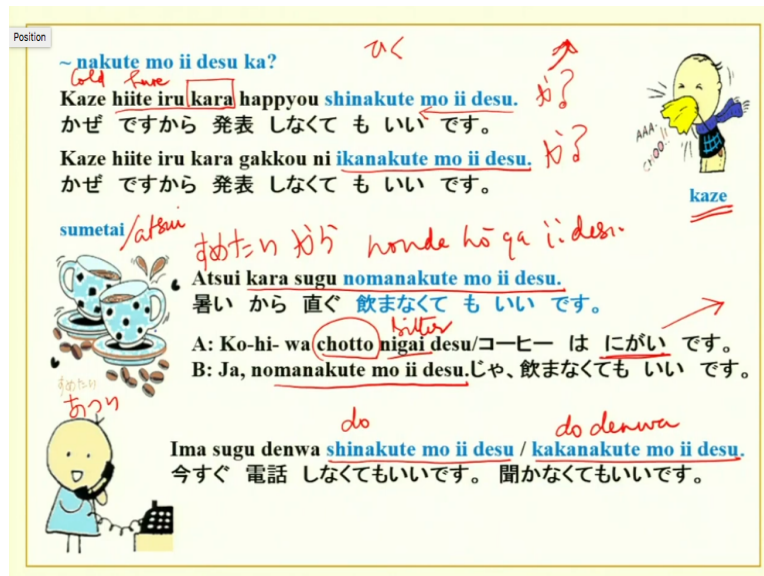 Position
~ nakute mo ii desu ka?
ひく
Cold have
Kaze hiite iru kara happyou shinakute mo ii desu. か?
かぜ ですから 発表 しなくて も いい です。
Kaze hiite iru kara gakkou ni ikanakute mo ii desu. か?
かぜ ですから 発表 しなくて も いい です。
AAA-CHOO!!
kaze
sumetai/atsui
すめたい から nonde hō ga ii desu.
Atsui kara sugu nomanakute mo ii desu.
暑い から 直ぐ 飲まなくて も いい です。
bitter
A: Ko-hi- wa chotto nigai desu/コーヒー は にがい です。
B: Ja, nomanakute mo ii desu.じゃ、飲まなくても いい です。
すめたい
あつい
do do denwa
Ima sugu denwa shinakute mo ii desu / kakanakute mo ii desu.
今すぐ 電話 しなくてもいいです。 聞かなくてもいいです。